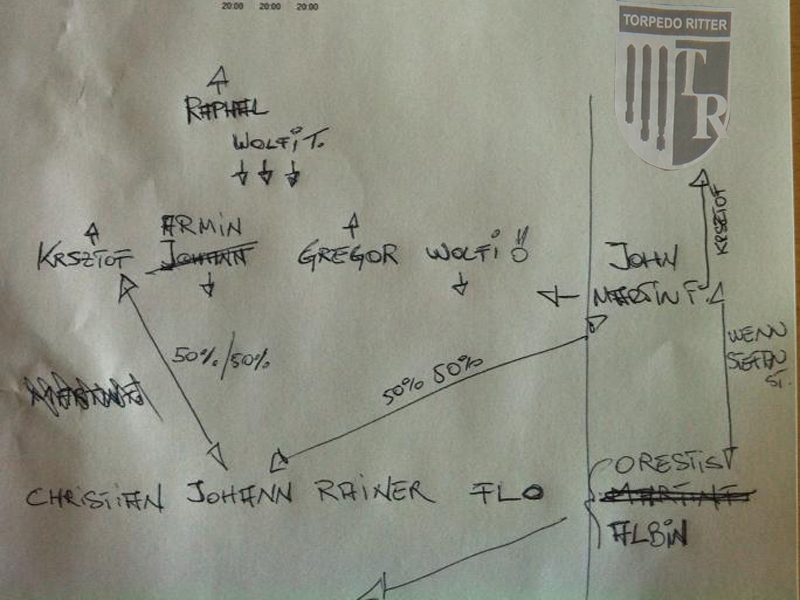 20:00 20:00 20:00
TORPEDO RITTER
TR
RAPHAEL
WOLFI T.
KRSZTOF
ARMIN
JOHANN
GREGOR WOLFI
JOHN
MARTIN F.
KRSZTOF
50%/50%
50% 50%
WENN
STEFAN
ORESTIS
CHRISTIAN JOHANN RAINER FLO
MARTIN F
ALBIN